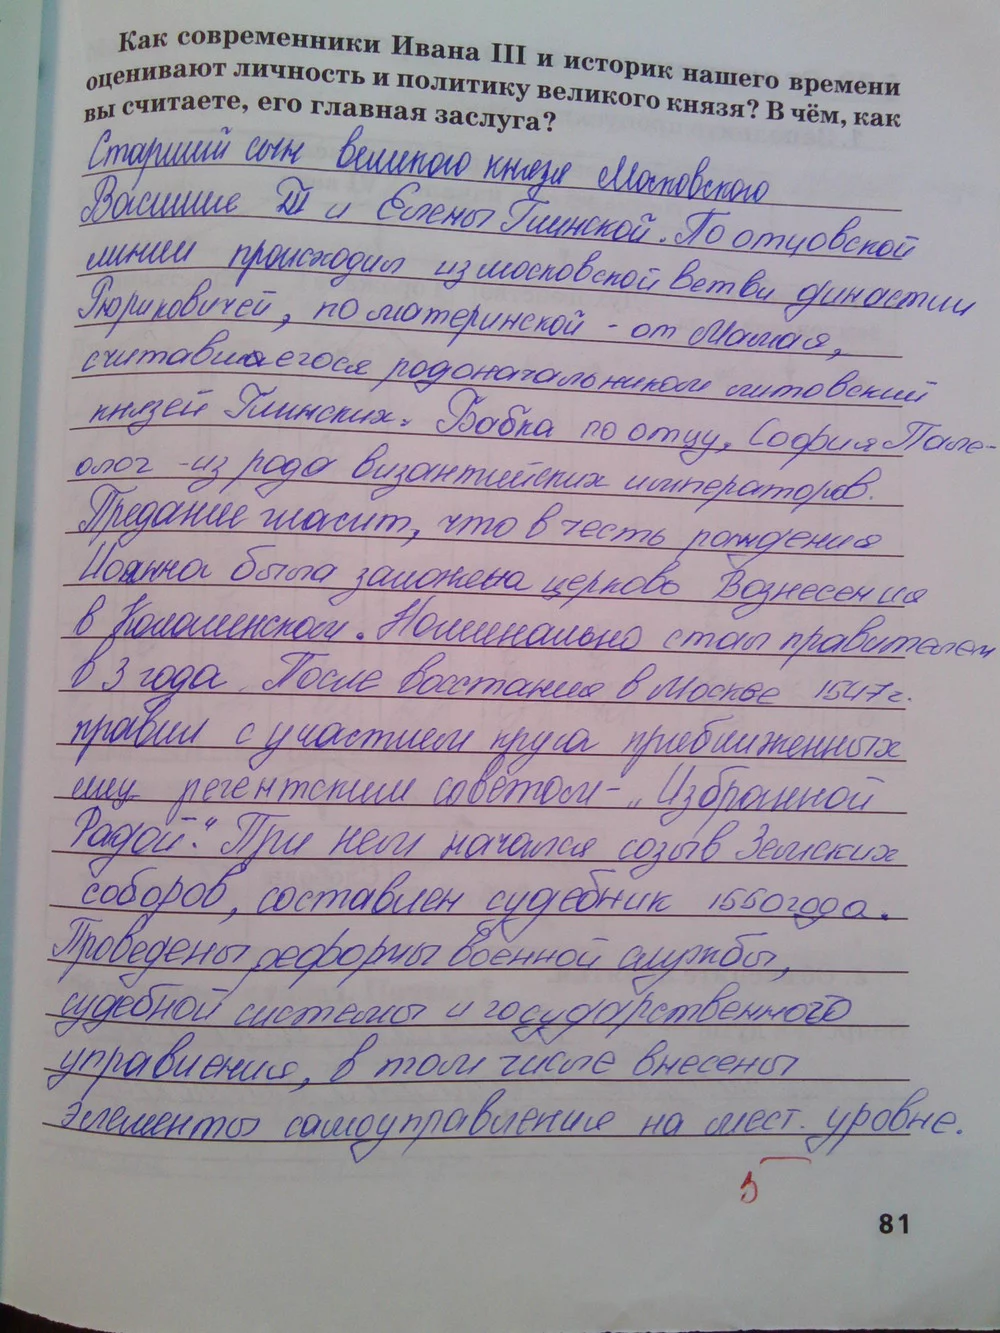 Как современники Ивана III и историк нашего времени
оценивают личность и политику великого князя? В чём, как
вы считаете, его главная заслуга?
Старший сын великого князя Московского
Василие III и Елены Глинской. По отцовской
линии происходил из московской ветви династии
Рюриковичей, по материнской - от Мамая,
считавшаегося родоначальником литовский
князей Глинских. Бабка по отцу, София Пале-
олог - из рода византийских императоров.
Предание гласит, что в честь рождения
Иоанна была заложена церковь Вознесения
в Коломенском. Номинально стал правителем
в 3 года. После восстания в Москве 1547 г.
правил с участием круга приближенных
ему регентским советом - "Избранной
Радой". При нем начался созыв Земских
соборов, составлен судебник 1550 года.
Проведены реформы военной службы,
судебной системы и государственного
управления, в том числе внесены
элементы самоуправления на мест. уровне.
5
81